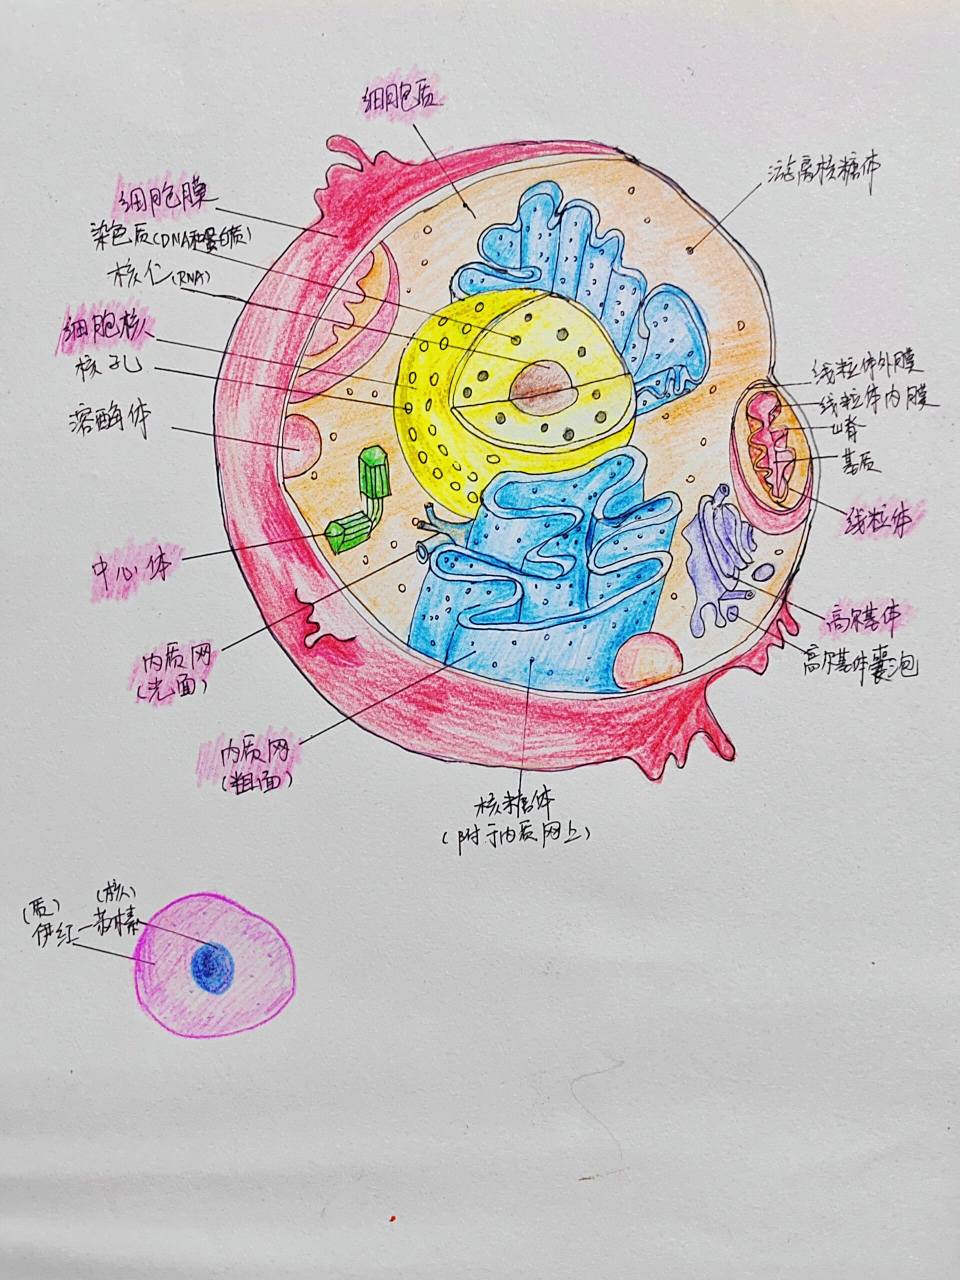 细胞质
游离核糖体
细胞膜
染色质(DNA和蛋白质)
核仁(RNA)
细胞核
核孔
溶酶体
线粒体外膜
线粒体内膜
嵴
基质
线粒体
中心体
高尔基体
高尔基体囊泡
内质网
(光面)
内质网
(粗面)
核糖体
(附于内质网上)
(质) (核)
伊红—苏木素